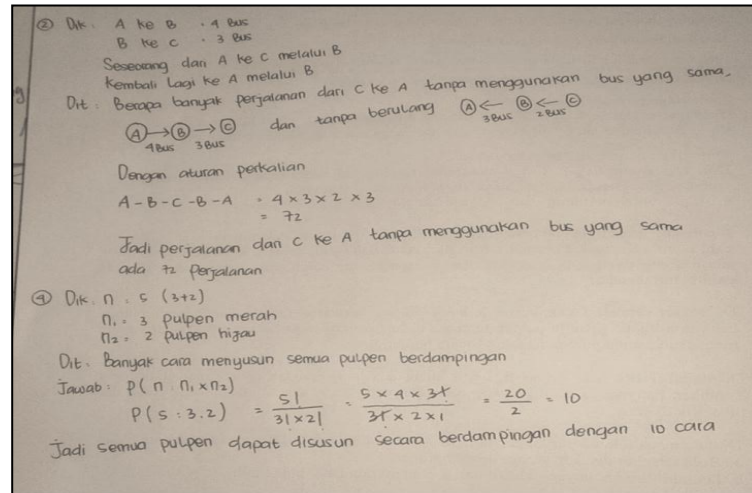 ② Dik. A ke B . 4 Bus
B ke C . 3 Bus
Seseorang dari A ke C melalui B
Kembali Lagi ke A melalui B
Dit : Berapa banyak perjalanan dari C ke A tanpa menggunakan bus yang sama.
Ⓐ→Ⓑ→Ⓒ dan tanpa berulang Ⓐ←Ⓑ←Ⓒ
4 Bus 3 Bus 3 Bus 2 Bus
Dengan aturan perkalian
A - B - C - B - A = 4 × 3 × 2 × 3
= 72
Jadi perjalanan dari C ke A tanpa menggunakan bus yang sama
ada 72 Perjalanan
④ Dik. n = 5 (3+2)
n₁ = 3 pulpen merah
n₂ = 2 pulpen hijau
Dit. Banyak cara menyusun semua pulpen berdampingan
Jawab : P( n : n₁ × n₂)
P( 5 : 3.2 ) = 5! / 3! × 2! = 5 × 4 × 3! / 3! × 2 × 1 = 20 / 2 = 10
Jadi semua pulpen dapat disusun secara berdampingan dengan 10 cara